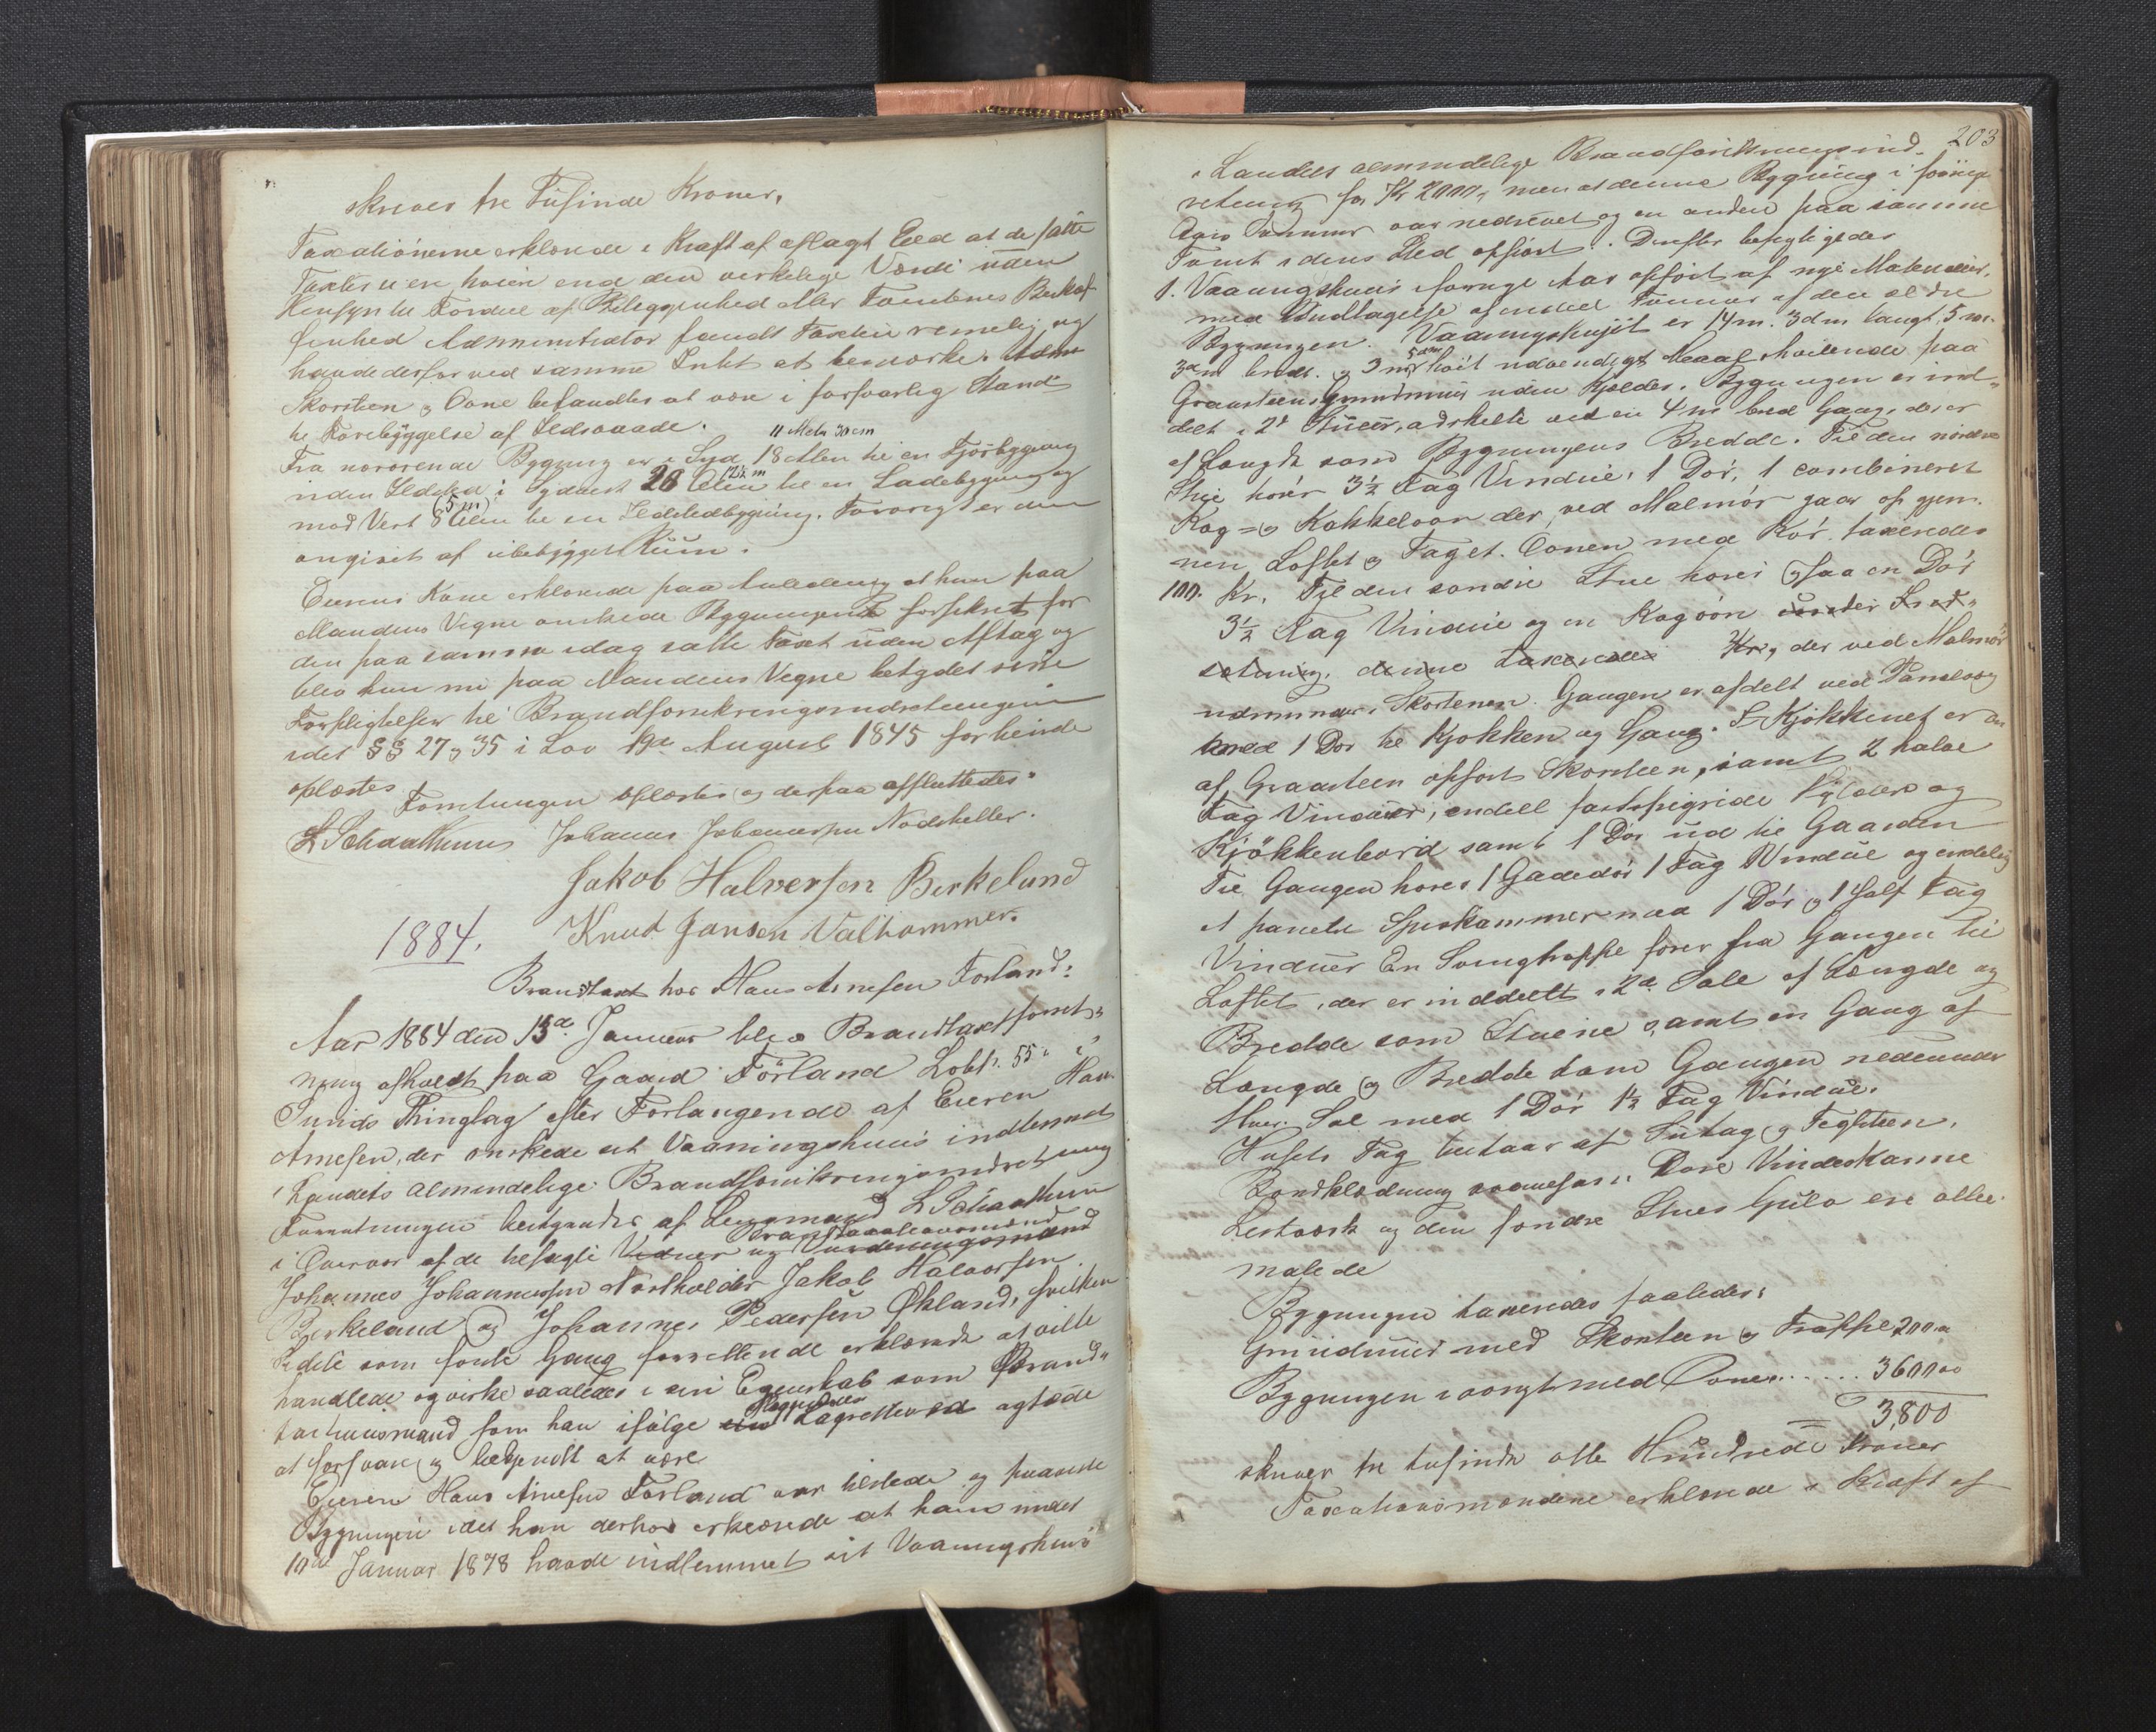 skriver tre Tusinde Kroner.
Taxationerne erklærede i Kraft af aflagt Eed at de satte
Taxter ei ere høiere end den verkelige Værdi uden
Hensyn til Fordeel af Beliggenhed eller Tomtens Beskaf-
fenhed Administrator fandt Taxten rimelig og
havde derfor ved samme Intet at bemærke.
Skorsteen & Ovne befandtes at være i forsvarlig Stand
til Forebyggelse af Ildsvaade.
11 Meter 30 cm
Fra nærværende Bygning er i Syd 18 Alen til en Fjøsbygning
uden Ildsted i Sydvest 20 Alen til en Ladebygning og
12½ m
(5 m)
mod Vest 8 Alen til en Ildstedbygning. Forøvrigt er den
omgivet af ubebygget Rum.
Eierens Kone erklærede paa Anledning at hun paa
Mandens Vegne ønskede Bygningen forsikret for
den paa samme idag satte Taxt uden Aftag og
blev hun nu paa Mandens Vegne betydet sine
Forpligtelser til Brandforsikringsindretningen
idet §§ 27 & 35 i Lov 19de August 1845 for hende
oplæstes
Forretningen oplæstes og derpaa afsluttedes.
L Schaathuun Johannes Johannessen Nodtheller.
Jakob Halversen Birkeland
Knud Jansen Valhammer.
1884.
Brandtaxt hos Hans Arnesen Førland:
Aar 1884 den 15de Januar blev Brandtaxtforret-
ning afholdt paa Gaard Førland LøbN. 55 i
Sunds Thinglag efter Forlangende af Eieren Hans
Arnesen, der ønskede sit Vaaningshuus indlemmet
i Landets almindelige Brandforsikringsindretning
Forretningen bestyredes af Lensmand L Schaathun
Brandtaxationsmænd
i Overvær af de befalte Vidner og Vurderingsmænd
Johannes Johannessen Nodtheller Jakob Halvorsen
Birkeland og Johannes Pedersen Økland, hvilken
Sidste som første Gang forrettende erklærede at ville
handlede og virke saaledes i sin Egenskab som Brand-
taxtionsmand som han ifølge Lagretteeed agtede
at forsvare og bekjendt at være
Eieren Hans Arnesen Førland var tilstede og paaviste
Bygningen idet han derhos erklærede at han under
10de Januar 1878 havde indlemmet sit Vaaningshuus
203
i Landets almindelige Brandforsikringsind-
retning for Kr 2000, men at denne Bygning i forrige
Aars Sommer var nedrevet og en anden paa samme
Tomt i dens Sted opført. Derefter besigtigedes
1. Vaaningshuus i forrige Aar opført af nye Materialier,
med Undtagelse af endeel Tømmer af den ældre
Bygningen. Vaaningshuset er 14 m. 3 dm langt, 5 m.
5 dm
3 dm bredt. og 3 m høit udvendigt Maal hvilende paa
Graasteens Grundmuur uden Kjælder. Bygningen er ind-
delt i 2de Stuer, adskilte ved en 4 m bred Gang, der er
af Længde som Bygningens Bredde. Til den nordre
Stue hører 3½ Fag Vindue, 1 Dør, 1 combineret
Kog- og Kakkelovn der, ved Malmrør gaar op gjen-
nem Loftet og Taget. Ovnen med Rør taxeredes
100. Kr. Til den søndre Stue hører ogsaa en Dør
3½ Fag Vindue og en Kogovn under Ansæt-
sætning, denne taxeredes Kr, der ved Malmrør
udmunder i Skorstenen. Gangen er afdelt ved Panelvæg
med 1 Dør til Kjøkken og Gang. I Kjøkkenet er en
af Graasteen opført Skorsteen, samt 2 halve
Fag Vinduer, endeel fastspigrede Hylder og
Kjøkkenbord samt 1 Dør ud til Gaarden
Til Gangen hører 1 Gadedør 1 Fag Vindue og endelig
et panelet Spiskammer med 1 Dør & 1 Half Fag
Vinduer En Svingtrappe fører fra Gangen til
Loftet, der er inddeelt i 2de Sale af Længde og
Bredde som Stuerne samt en Gang af
Længde & Bredde som Gangen nedenunder
Hver Sal med 1 Dør 1½ Fag Vindue.
Husets Tag bestaar af Sutag & Teglsteen.
Bordklædning Døre Vindeskarme
Listværk og den søndre Stues Gulv ere oliie-
malede
Bygningen taxeredes saaledes:
Grundmuur med Skorsteen & Trappe 200.
Bygningen iøvrigt med Ovne...... 3600 00
3,800
skriver tre tusinde otte Hundrede Kroner
Taxationsmændene erklærede i Kraft af